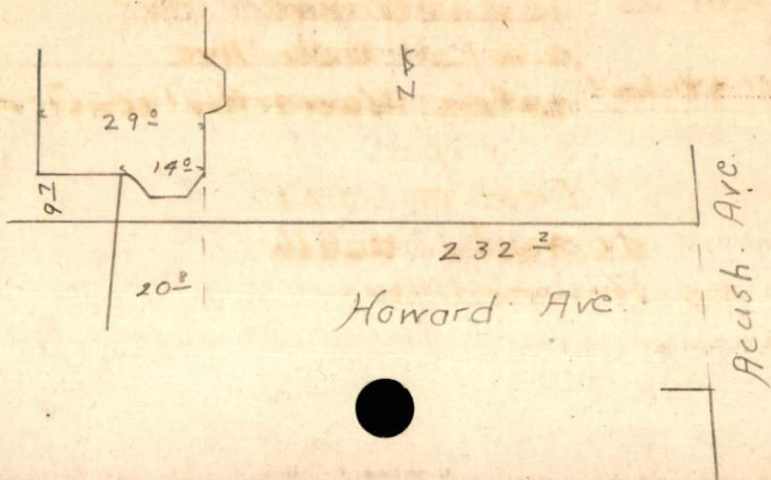 N
29º
14º
9 7
232 2
20 8
Howard Ave
Acush. Ave.